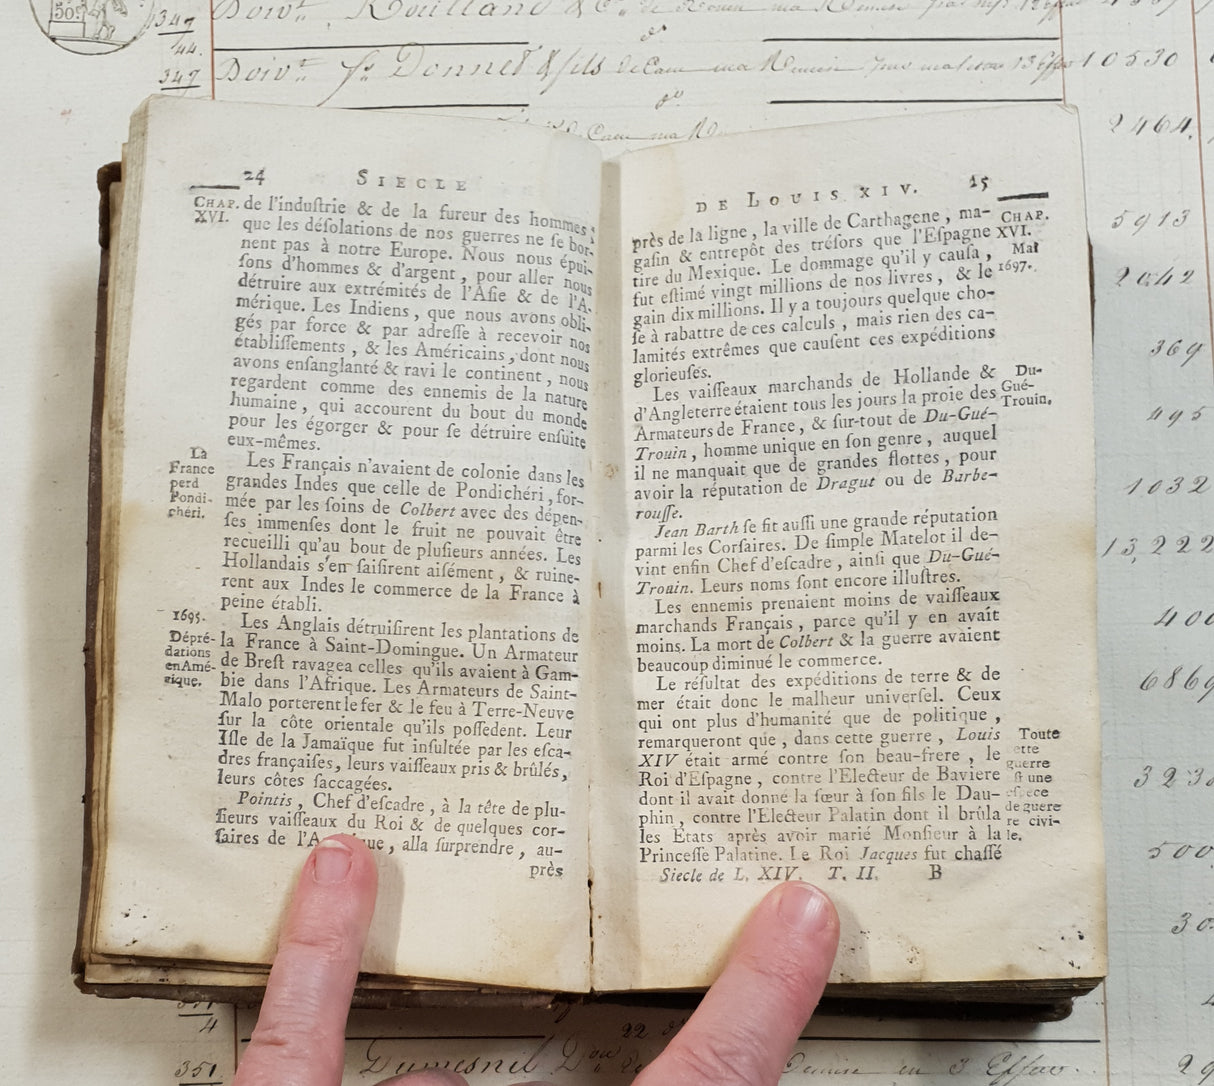 50c
347
44.
347
Doiv.t Rouilland &
Doiv.t Donnet & fils de Caen
10530
2464.
24 SIECLE
CHAP. XVI.
de l'induſtrie & de la fureur des hommes ;
que les déſolations de nos guerres ne ſe bor-
nent pas à notre Europe. Nous nous épui-
ſons d'hommes & d'argent , pour aller nous
détruire aux extrémités de l'Aſie & de l'A-
mérique. Les Indiens , que nous avons obli-
gés par force & par adreſſe à recevoir nos
établiſſements , & les Américains , dont nous
avons enſanglanté & ravi le continent , nous
regardent comme des ennemis de la nature
humaine , qui accourent du bout du monde
pour les égorger & pour ſe détruire enſuite
eux-mêmes.
La
France
perd
Pondi-
chéri.
Les Français n'avaient de colonie dans les
grandes Indes que celle de Pondichéri , for-
mée par les ſoins de Colbert avec des dépen-
ſes immenſes dont le fruit ne pouvait être
recueilli qu'au bout de pluſieurs années. Les
Hollandais s'en ſaiſirent aiſément , & ruine-
rent aux Indes le commerce de la France à
peine établi.
1695.
Dépré-
dations
en Amé-
rique.
Les Anglais détruiſirent les plantations de
la France à Saint-Domingue. Un Armateur
de Breſt ravagea celles qu'ils avaient à Gam-
bie dans l'Afrique. Les Armateurs de Saint-
Malo porterent le fer & le feu à Terre-Neuve
ſur la côte orientale qu'ils poſſedent. Leur
Iſle de la Jamaïque fut inſultée par les eſca-
dres françaiſes, leurs vaiſſeaux pris & brûlés,
leurs côtes ſaccagées.
Pointis , Chef d'eſcadre , à la tête de plu-
ſieurs vaiſſeaux du Roi & de quelques cor-
ſaires de l'A que , alla ſurprendre , au-
près
DE LOUIS XIV. 25
près de la ligne , la ville de Carthagene , ma-
gaſin & entrepôt des tréſors que l'Eſpagne
tire du Mexique. Le dommage qu'il y cauſa ,
fut eſtimé vingt millions de nos livres , & le
gain dix millions. Il y a toujours quelque cho-
ſe à rabattre de ces calculs , mais rien des ca-
lamités extrêmes que cauſent ces expéditions
glorieuſes.
CHAP.
XVI.
Mai
1697.
Les vaiſſeaux marchands de Hollande &
d'Angleterre étaient tous les jours la proie des
Armateurs de France , & ſur-tout de Du-Gué-
Trouin , homme unique en ſon genre , auquel
il ne manquait que de grandes flottes , pour
avoir la réputation de Dragut ou de Barbe-
rouſſe.
Du-
Gué-
Trouin.
Jean Barth ſe fit auſſi une grande réputation
parmi les Corſaires. De ſimple Matelot il de-
vint enfin Chef d'eſcadre , ainſi que Du-Gué-
Trouin. Leurs noms ſont encore illuſtres.
Les ennemis prenaient moins de vaiſſeaux
marchands Français , parce qu'il y en avait
moins. La mort de Colbert & la guerre avaient
beaucoup diminué le commerce.
Le réſultat des expéditions de terre & de
mer était donc le malheur univerſel. Ceux
qui ont plus d'humanité que de politique ,
remarqueront que , dans cette guerre , Louis
XIV était armé contre ſon beau-frere , le
Roi d'Eſpagne , contre l'Electeur de Baviere
dont il avait donné la ſœur à ſon fils le Dau-
phin , contre l'Electeur Palatin dont il brûla
les Etats après avoir marié Monſieur à la
Princeſſe Palatine. Le Roi Jacques fut chaſſé
Toute
ette
guerre
ſt une
eſpece
de guere
re civi-
le.
Siecle de L. XIV. T. II. B
5913
2642
369
495
1032
13,222
400
6869
323
500
30
4
22
351.
Dumesnil